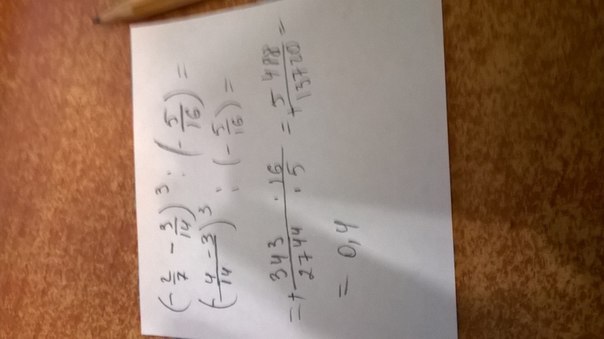 (-2/7 - 3/14)³ : (-5/16) =
(-4-3/14)³ : (-5/16) =
= + 343/2744 · 16/5 = + 5488/13720 =
= 0,4